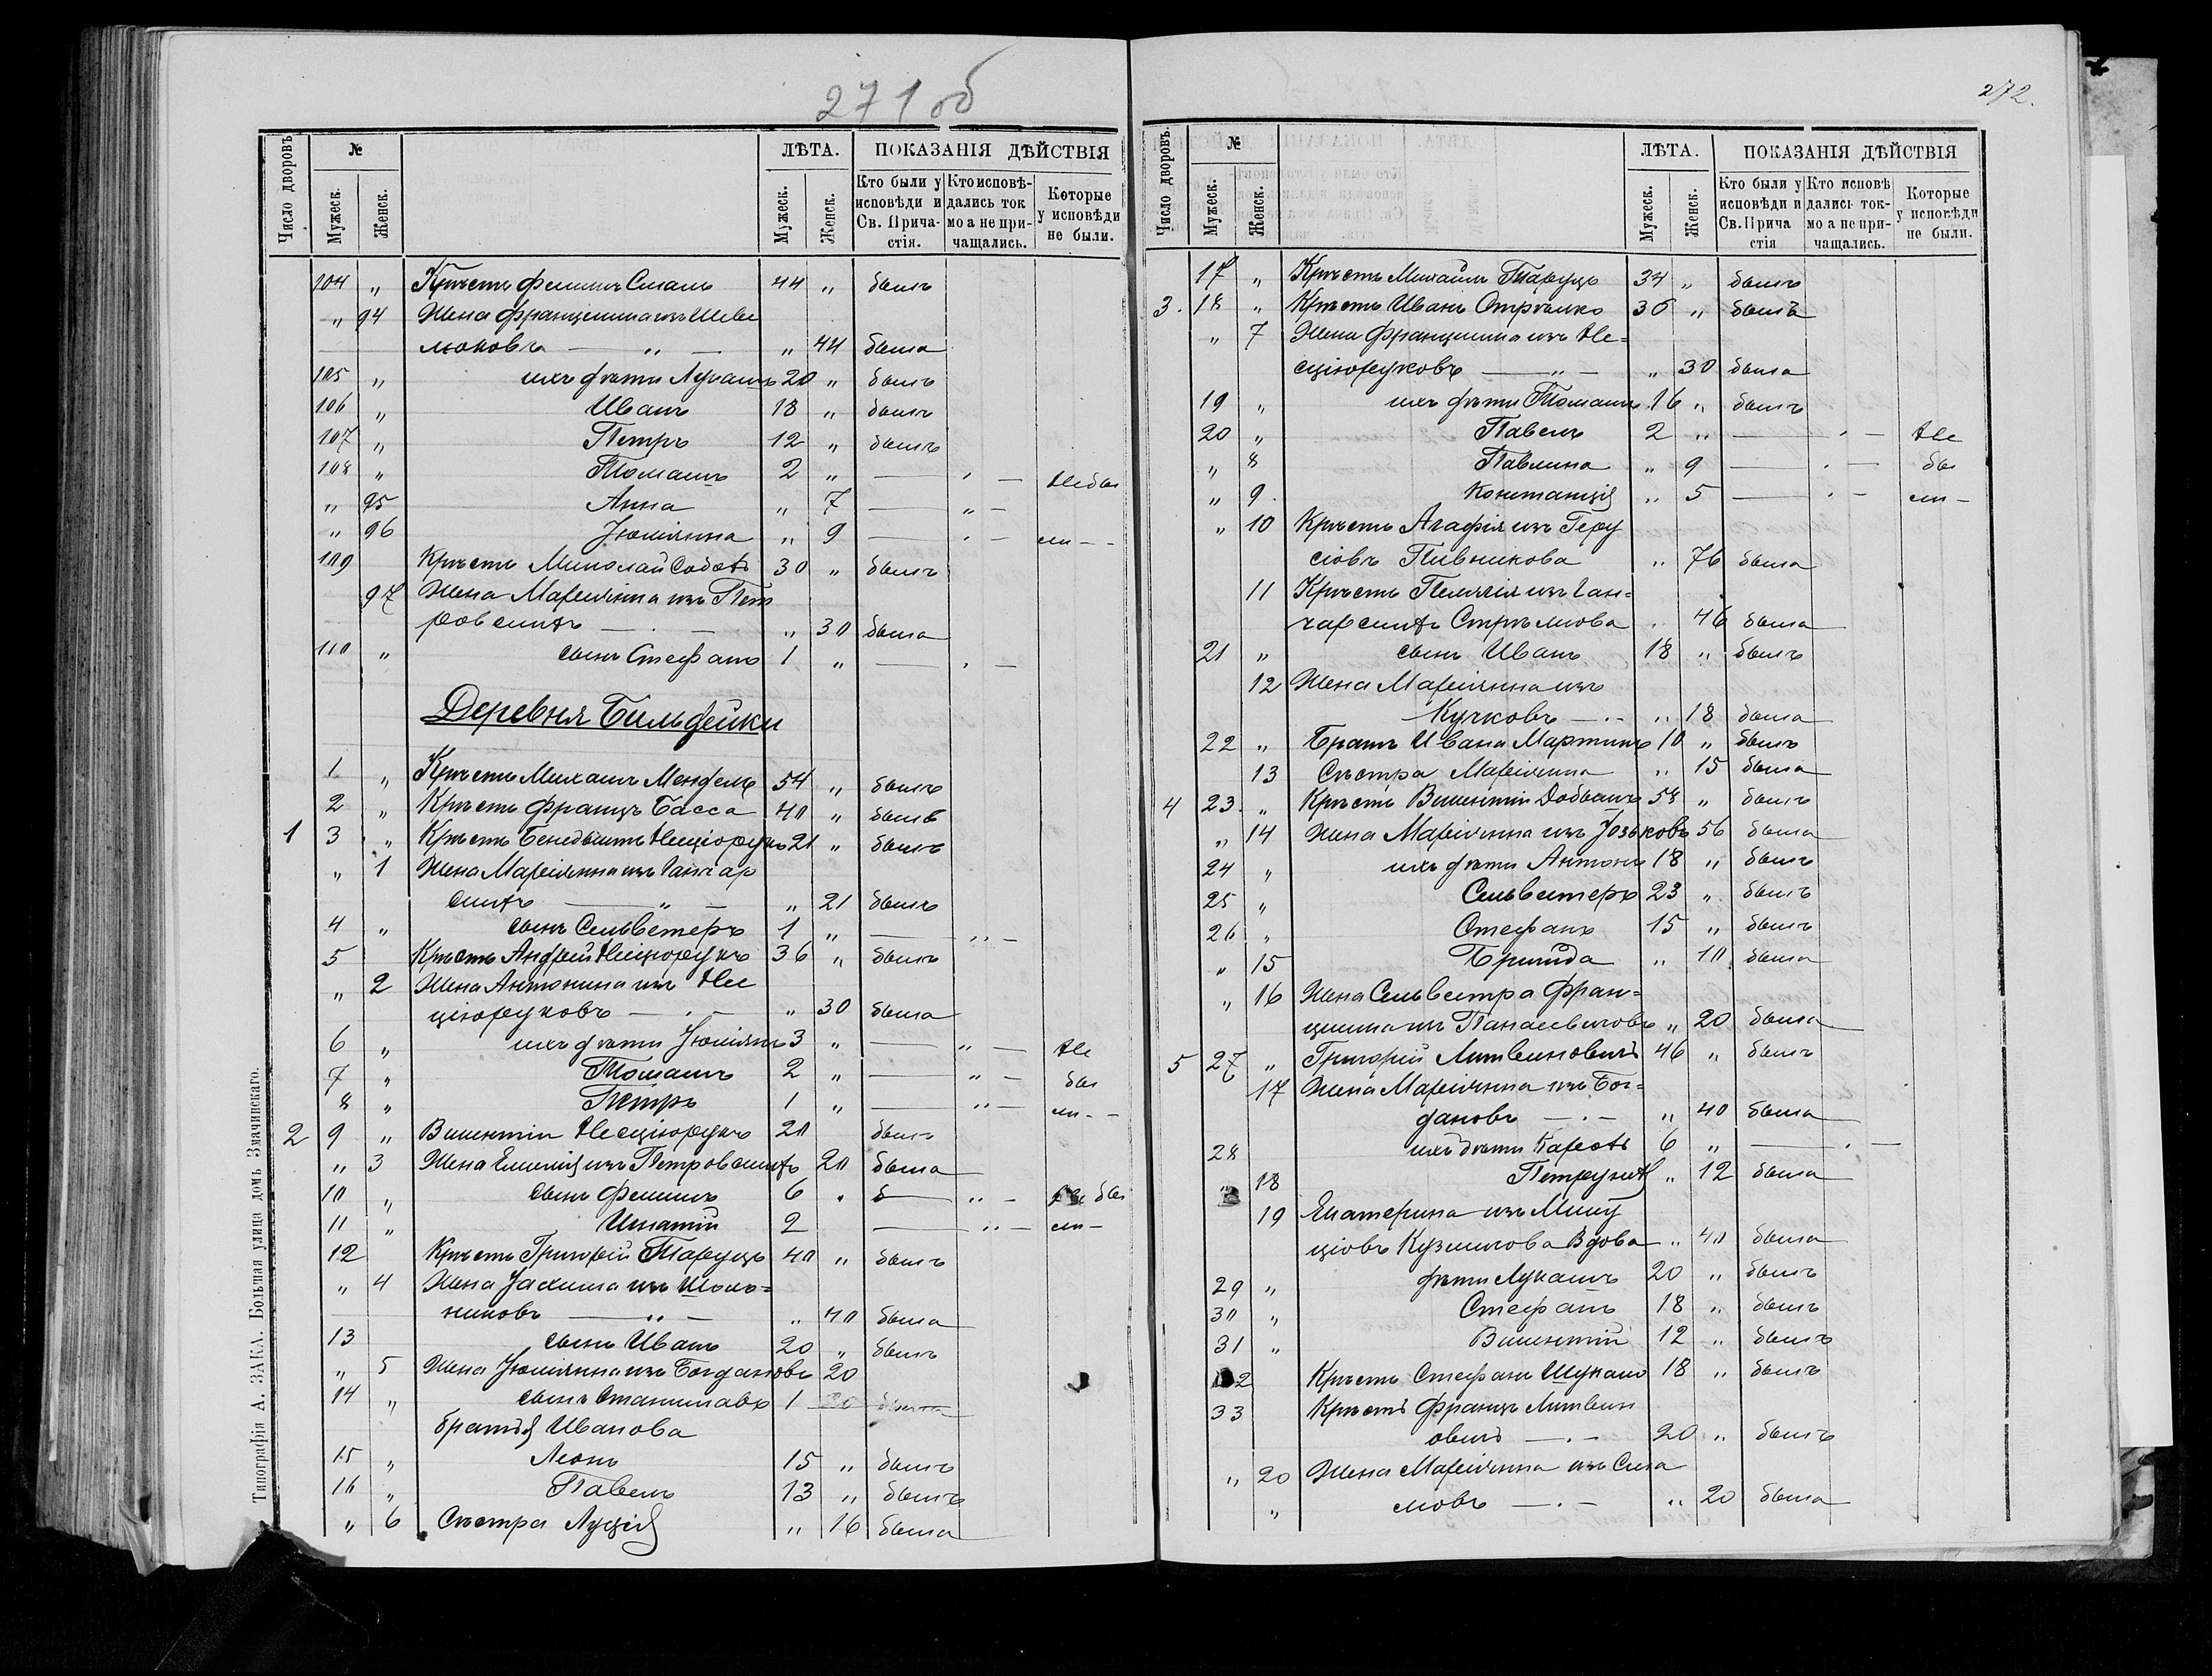 271 об
Число дворовъ.
№
Мужеск. Женск.
ЛѢТА.
Мужеск. Женск.
ПОКАЗАНІЯ ДѢЙСТВІЯ
Кто были у исповѣди и Св. Прича-стія.
Кто исповѣ-дались ток мо а не при-чащались.
Которые у исповѣди не были.
104 „ Крѣст. 44 „ былъ
„ 94 Жена Францишка изъ Шеве
люковъ — „ — „ 44 была
105 „ ихъ дѣти Лукашъ 20 „ былъ
106 „ Иванъ 18 „ былъ
107 „ Петръ 12 „ былъ
108 „ Томашъ 2 „ — „ — Не бы
„ 95 Анна „ 7 — „ —
„ 96 Юліянна „ 9 — „ — ли - -
109 Крѣст. 30 „ былъ
97 Жена Маріянна изъ Пет
ровскихъ — „ — „ 30 была
110 „ сынъ Стефанъ 1 „ — „ —
Деревня Бильдейки
1 „ Крѣст. Михаилъ Мендель 54 „ былъ
2 „ Крѣст. Францъ Басса 40 „ былъ
1 3 „ Крѣст. Бенедыктъ Несцюрукъ 21 „ былъ
„ 1 Жена Маріянна изъ Ганчар
скихъ — „ — „ 21 былъ
4 „ сынъ Сельвестеръ 1 „ — „ —
5 Крѣст. Андрей Несцюрукъ 36 „ былъ
„ 2 Жена Антонина изъ Нес
цюруковъ — „ — „ 30 была
6 „ ихъ дѣти Юліянъ 3 „ — „ — Не
7 „ Томашъ 2 „ — „ — бы
8 „ Петръ 1 „ — „ — ли - -
2 9 „ Викентій Несцюрукъ 20 былъ
„ 3 Жена Емилія изъ Петровскихъ 20 была
10 „ сынъ 6 „ — „ — Не бы
11 „ Игнатій 2 — „ — ли -
12 Крѣст. Григорій Таруцъ 40 „ былъ
„ 4 Жена изъ
никовъ — „ — „ 40 была
13 сынъ Иванъ 20 „ былъ
„ 5 Жена Юліянна изъ Богдановъ 20
14 „ сынъ Станиславъ 1
братья Иванова
15 „ Леонъ 15 „ былъ
16 „ Павелъ 13 „ былъ
„ 6 Сестра Луція „ 16 была
Типографія А. ЗАКА. Большая улица домъ Змачинскаго.
272.
Число дворовъ.
№
Мужеск. Женск.
ЛѢТА.
Мужеск. Женск.
ПОКАЗАНІЯ ДѢЙСТВІЯ
Кто были у исповѣди и Св. Прича стія
Кто исповѣ дались ток-мо а не при-чащались.
Которые у исповѣди не были.
17 „ Крѣст. Михаилъ Таруцъ 34 „ былъ
3. 18 „ Крѣст. Иванъ Стрѣлко 36 „ былъ
„ 7 Жена Францишка изъ Не-
сцюруковъ — „ — „ 30 была
19 „ ихъ дѣти Томашъ 16 „ былъ
20 „ Павелъ 2 „ — „ — Не
„ 8 Павлина „ 9 — „ — бы
„ 9 Констанція „ 5 — „ — ли -
„ 10 Крѣст. Агафія изъ
Пивникова „ 76 была
11 Крѣст. Пелагія изъ Ган-
чарскихъ Стрѣлкова „ 46 была
21 „ сынъ Иванъ 18 „ былъ
12 Жена Маріянна изъ
Кучковъ — „ 18 была
22 „ Братъ Ивана Мартинъ 10 „ былъ
13 Сестра Маріянна „ 15 была
4 23 „ Крѣст. Викентій 58 „ былъ
„ 14 Жена Маріянна изъ Юзьковъ 56 была
24 „ ихъ дѣти Антонъ 18 „ былъ
25 „ Сельвестеръ 23 „ былъ
26 „ Стефанъ 15 „ былъ
„ 15 Бригида „ 10 была
„ 16 Жена Сельвестра Фран-
цишка изъ Панасевичовъ „ 20 была
5 27 „ Григорій Литвиновичъ 46 „ былъ
17 Жена Маріянна изъ Бог-
дановъ — „ — „ 40 была
28 ихъ дѣти Кароль 6 „ — „ —
„ 18 Петрунеля „ 12 была
19 Екатерина изъ
Вдова „ 40 была
29 „ дѣти Лукашъ 20 „ былъ
30 „ Стефанъ 18 „ былъ
31 „ Викентій 12 „ былъ
32 Крѣст. Стефанъ 18 „ былъ
33 Крѣст. Францъ Литвин
овичъ — „ — 20 „ былъ
„ 20 Жена Маріянна изъ
„ — „ — „ 20 была